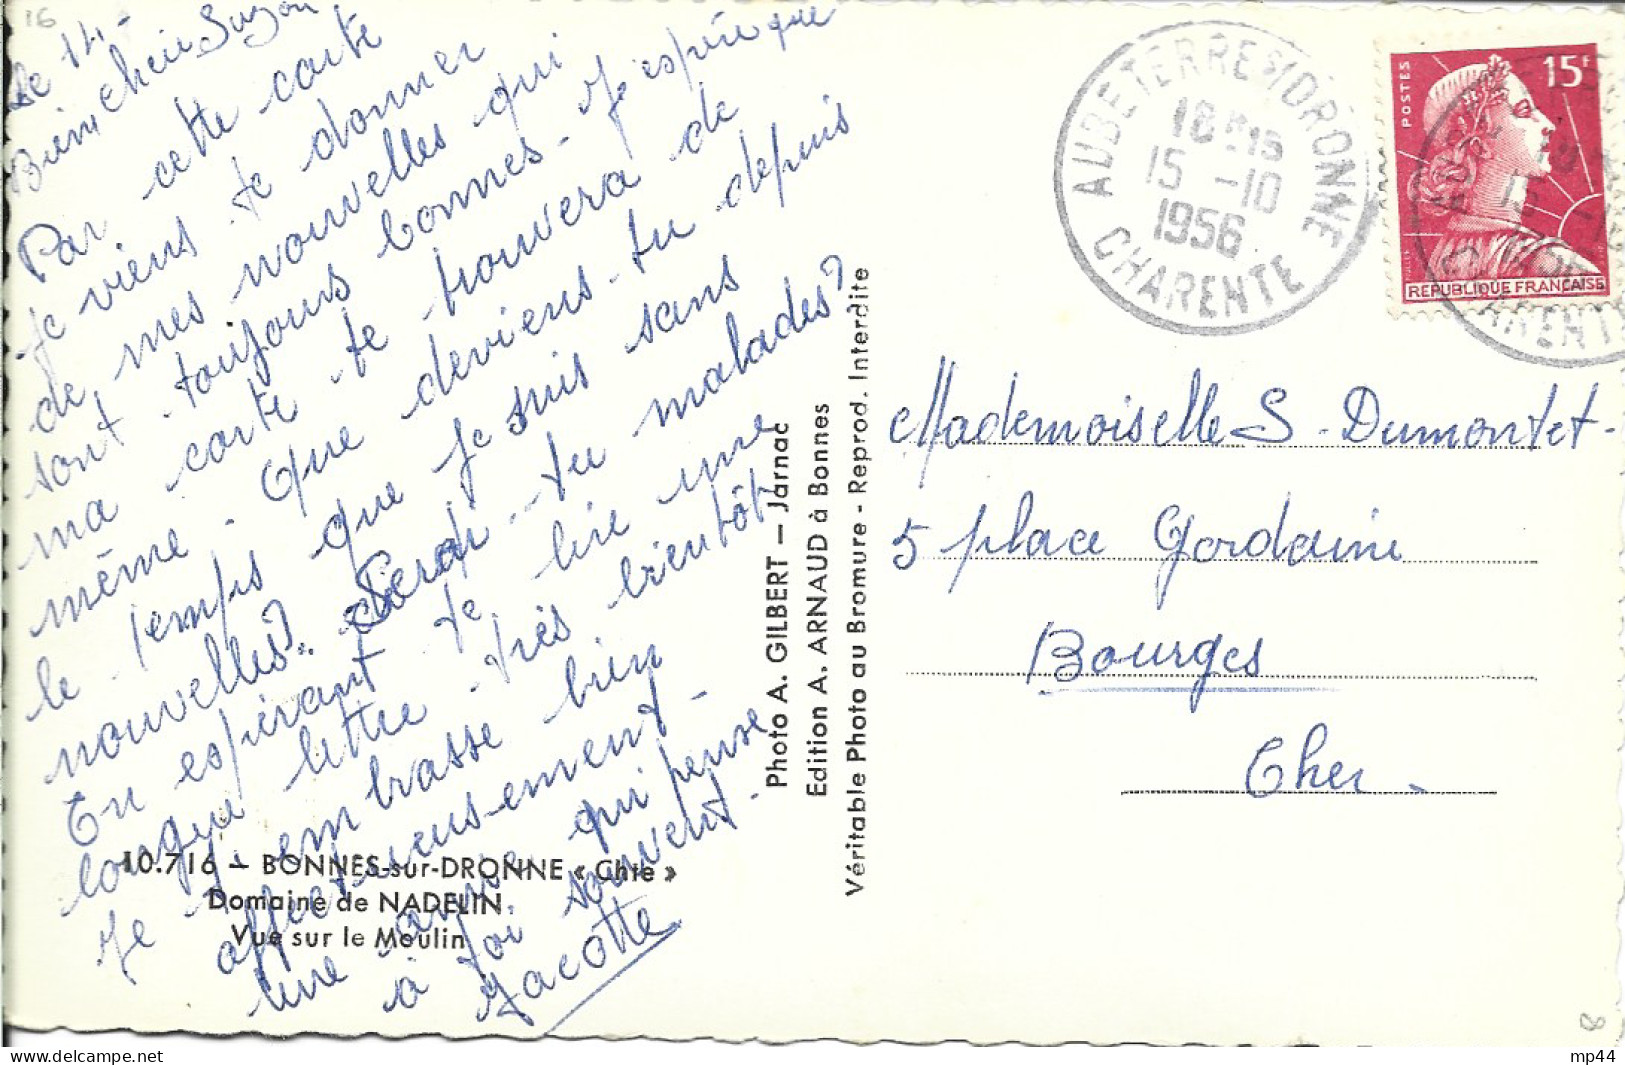 16
Le 14-
Bien Chère Suzon
Par cette carte
je viens te donner
de mes nouvelles qui
sont toujours bonnes - J'espère que
ma carte te trouvera de
même - Que deviens-tu depuis
le temps que je suis sans
nouvelles? Serais-tu malades?
En espérant te lire une
longue lettre très bientôt
Je t'embrasse bien
affectueusement -
une amie qui pense
à toi souvent -
Jacotte
10.716 — BONNES-sur-DRONNE « Chte »
Domaine de NADELIN
Vue sur le Moulin
Photo A. GILBERT — Jarnac
Edition A. ARNAUD à Bonnes
Véritable Photo au Bromure - Reprod. Interdite
AUBETERRE S/DRONNE
18H15
15 -10
1956
CHARENTE
POSTES
15F
REPUBLIQUE FRANÇAISE
Mademoiselle S. Dumontet -
5 place Gordaine
Bourges
Cher.
8
www.delcampe.net
mp44